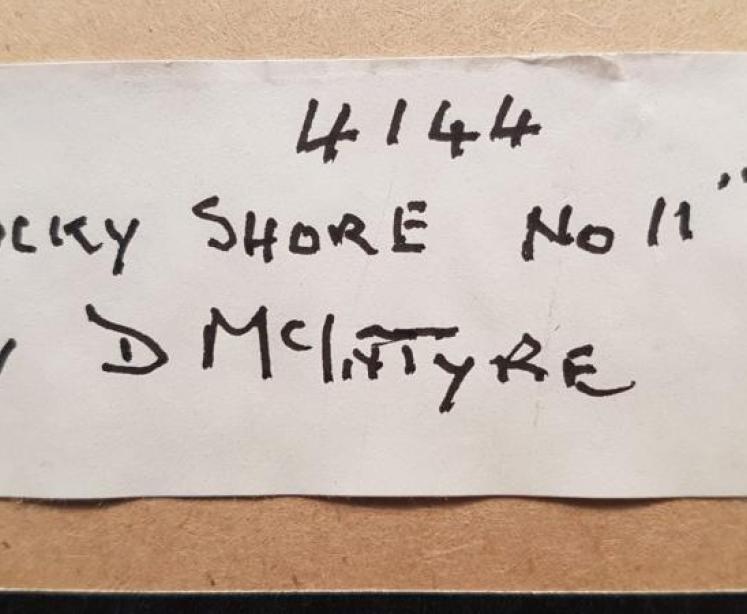 4144
OCKY SHORE No 11"
D McINTYRE